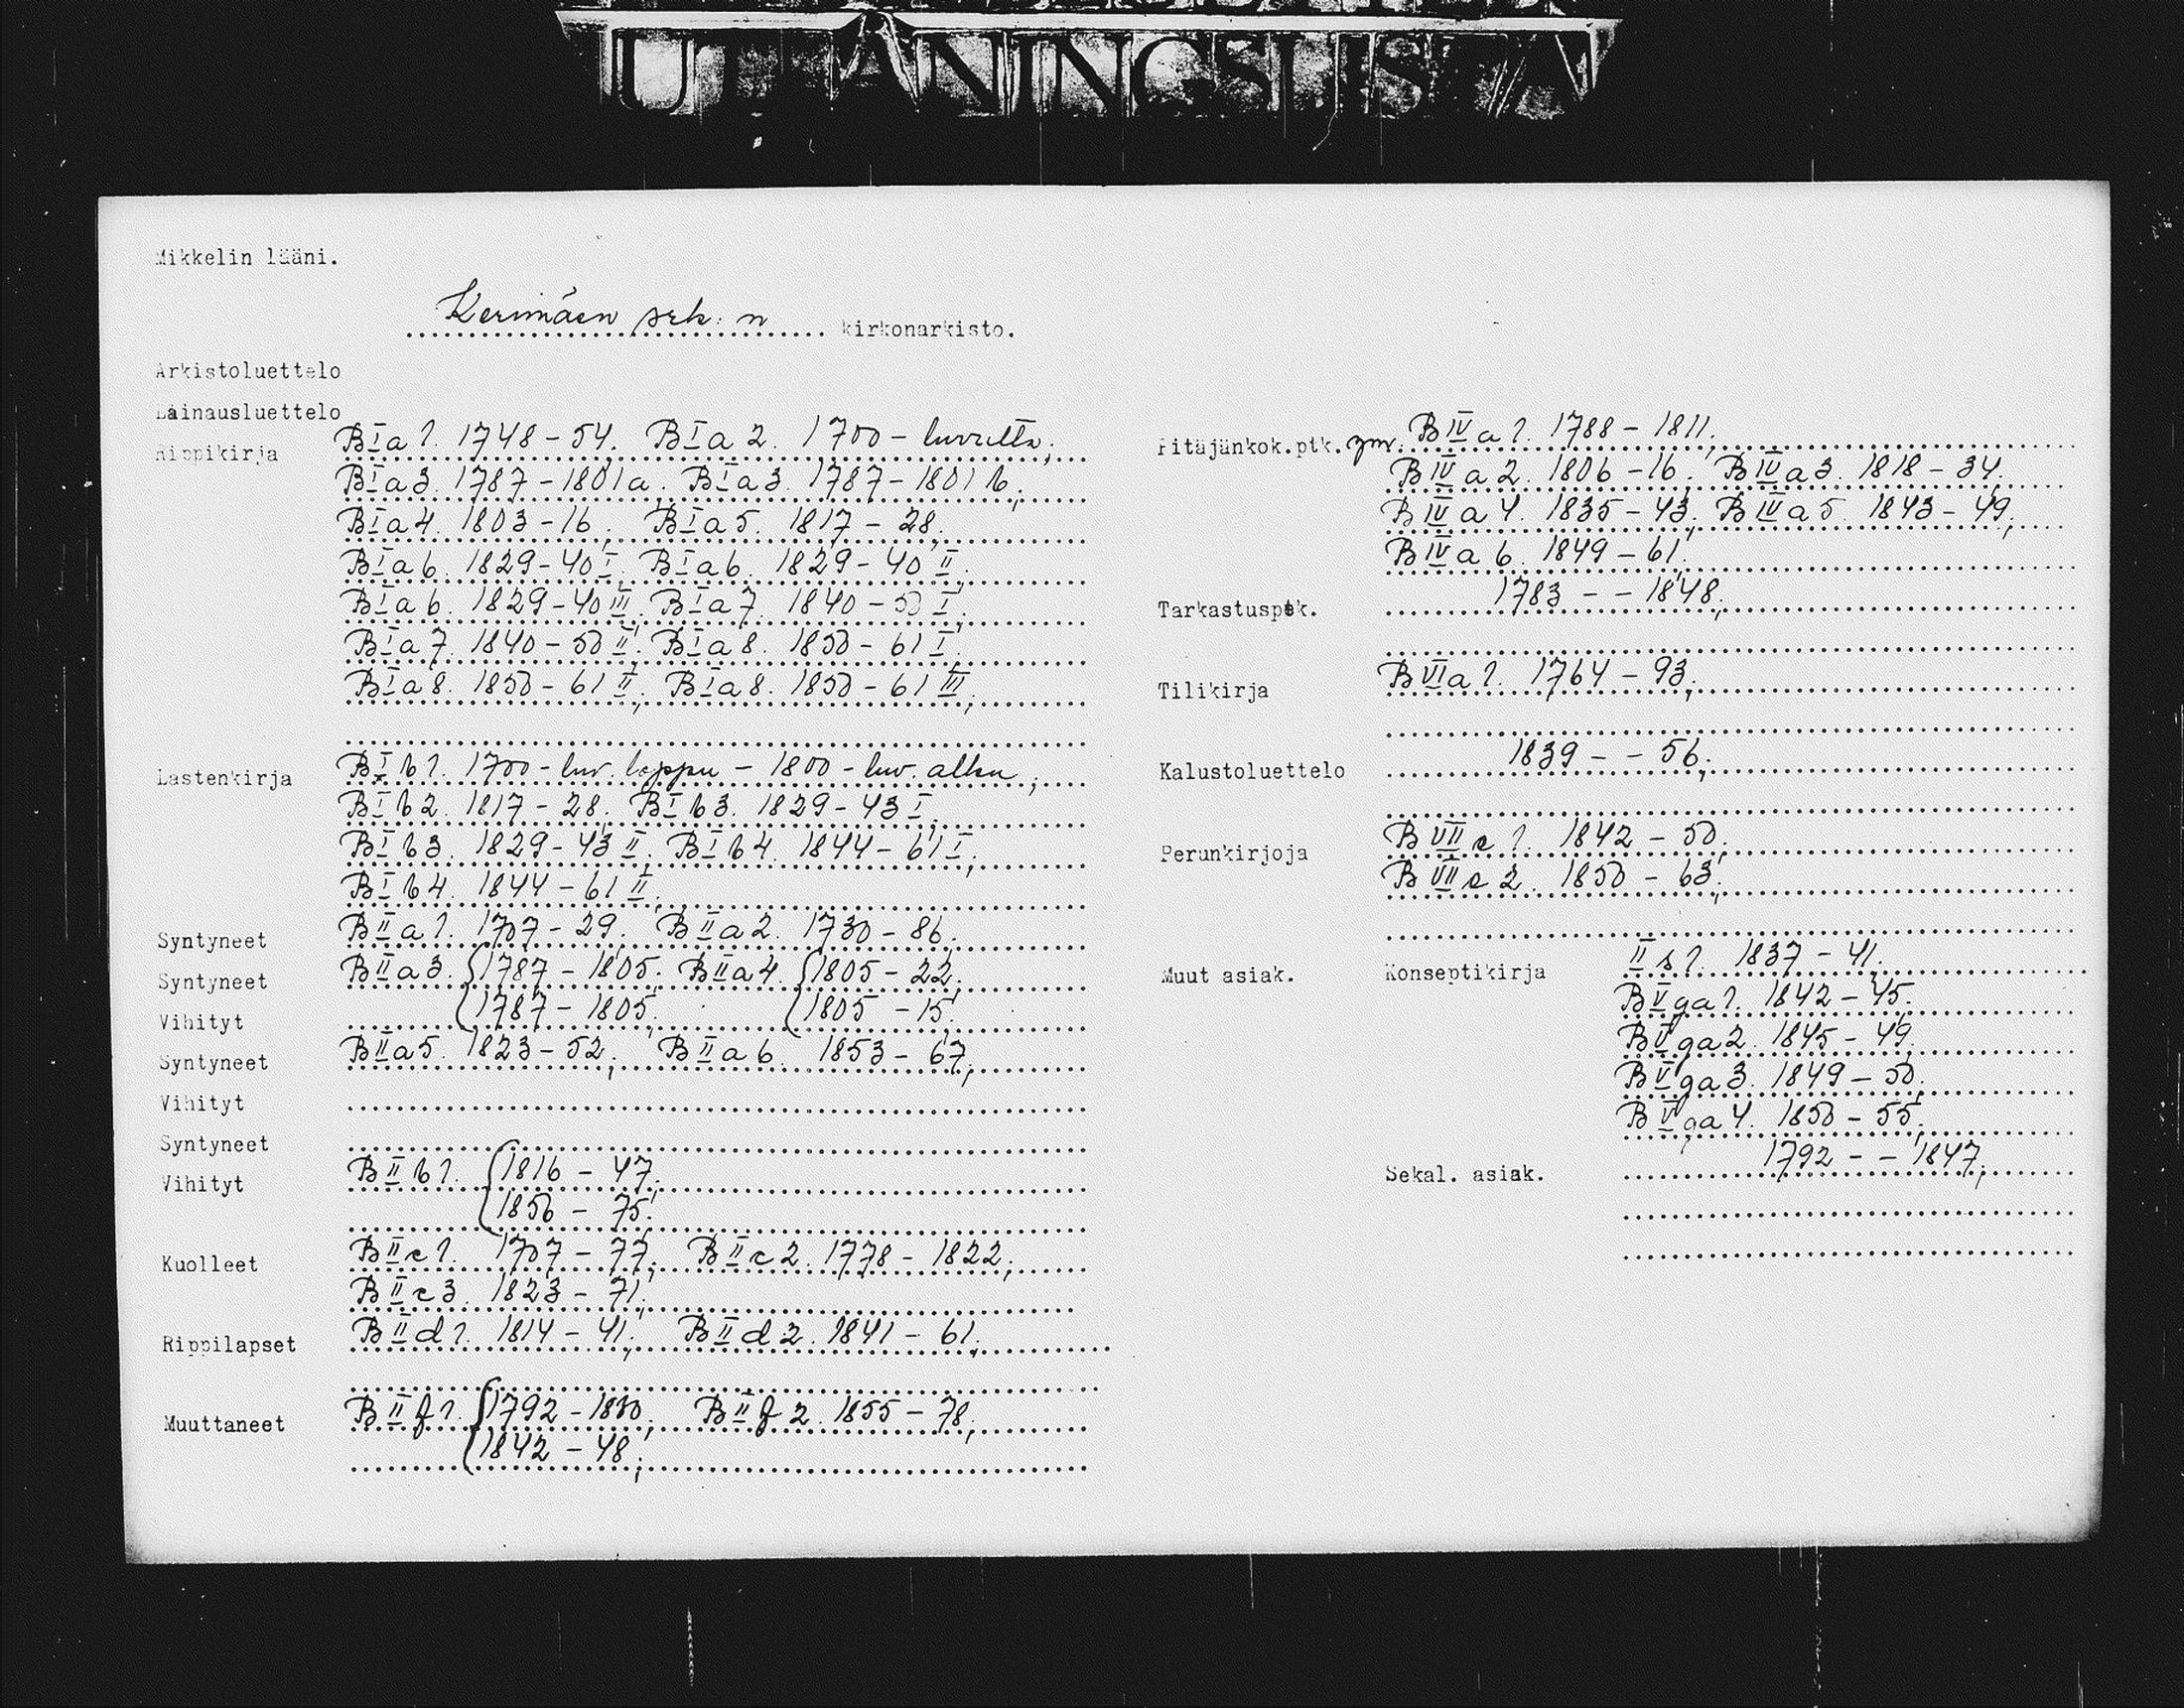 UTLÅNINGSLISTA
Mikkelin lääni.
Kerimäen srk:n kirkonarkisto.
Arkistoluettelo
Lainausluettelo
Rippikirja BIa1. 1748-54. BIa2. 1700-luvulta;
BIa3. 1787-1801a. BIa3. 1787-1801b;
BIa4. 1803-16; BIa5. 1817-28;
BIa6. 1829-40 I; BIa6. 1829-40 II;
BIa6. 1829-40 III; BIa7. 1840-50 I;
BIa7. 1840-50 II; BIa8. 1850-61 I;
BIa8. 1850-61 II; BIa8. 1850-61 III;
Lastenkirja BIb1. 1700-luv. loppu - 1800-luv. alku;
BIb2. 1817-28. BIb3. 1829-43 I;
BIb3. 1829-43 II; BIb4. 1844-61 I;
BIb4. 1844-61 II;
Syntyneet BIIa1. 1707-29. BIIa2. 1730-86.
Syntyneet BIIa3. {1787-1805. BIIa4. {1805-22.
Vihityt {1787-1805; {1805-15;
Syntyneet BIIa5. 1823-52; BIIa6. 1853-67;
Vihityt
Syntyneet
Vihityt BIIb1. {1816-47;
{1850-75;
Kuolleet BIIc1. 1707-77; BIIc2. 1778-1822;
BIIc3. 1823-71;
Rippilapset BIId1. 1814-41; BIId2. 1841-61;
Muuttaneet BIIf1. {1792-1830; BIIf2. 1855-78;
{1842-48;
Pitäjänkok.ptk. ym. BIVa1. 1788-1811;
BIVa2. 1806-16; BIVa3. 1818-34;
BIVa4. 1835-43; BIVa5. 1843-49;
BIVa6. 1849-61;
Tarkastusptk. 1783--1848;
Tilikirja BVIa1. 1764-93;
Kalustoluettelo 1839--56;
Perunkirjoja BVIIc1. 1842-50;
BVIIc2. 1850-63;
Muut asiak. Konseptikirja II s1. 1837-41.
BVga1. 1842-45.
BVga2. 1845-49.
BVga3. 1849-50.
BVga4. 1850-55;
Sekal. asiak. 1792--1847;